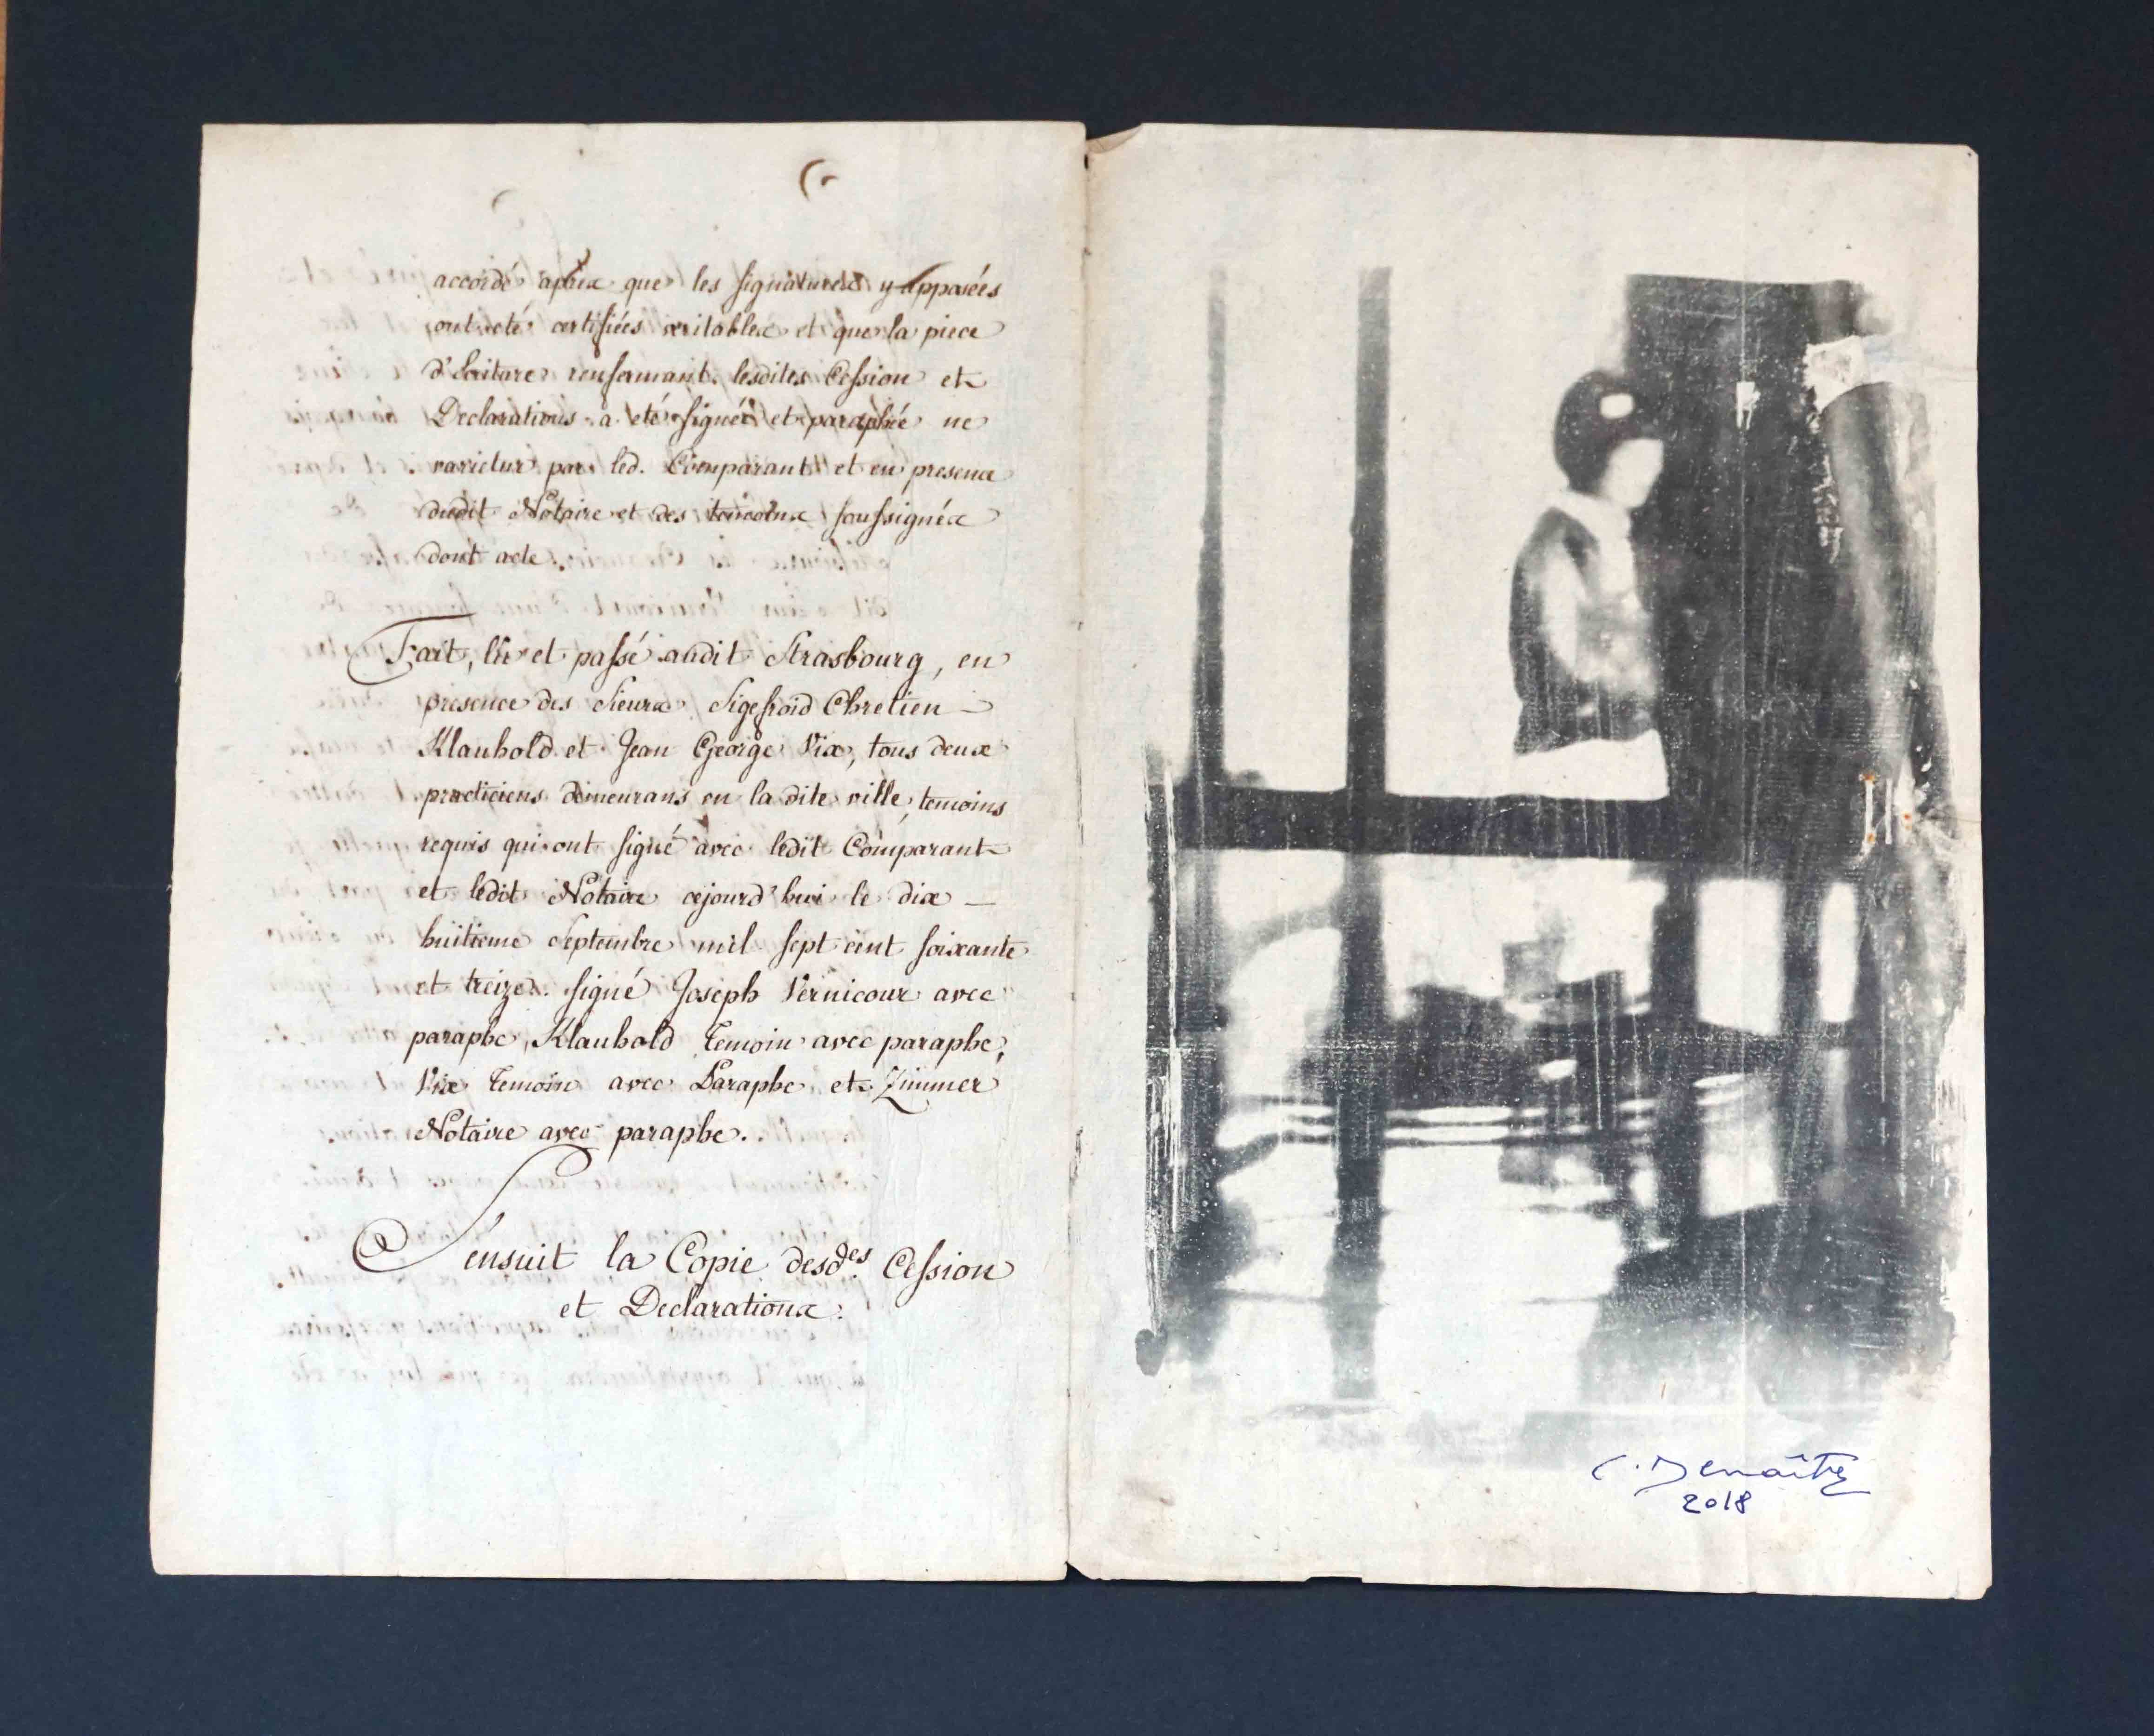 accordé aprèx que les signatures y apposées
ont eté certifiées veritables et que la piece
d'Ecriture renfermant lesdites Cession et
Declarations a eté signée et paraphée ne
varietur par led. Comparant et en presence
dudit Notaire et des temoins soussignés
dont acte.
Fait, lu et passé audit Strasbourg, en
presence des Sieurs Sigefroid Chretien
Klaubold et Jean George Vix, tous deux
practiciens demeurans en la dite ville, temoins
requis qui ont signé avec ledit Comparant
et ledit Notaire cejourd'hui le dix
huitieme Septembre mil sept cent soixante
et treize. signé Joseph Vernicour avec
paraphe, Klaubold Temoin avec paraphe,
Vix Temoin avec Paraphe et Zimmer
Notaire avec paraphe.
S'ensuit la Copie desd.es Cession
et Declarations:
C. Demaître
2018